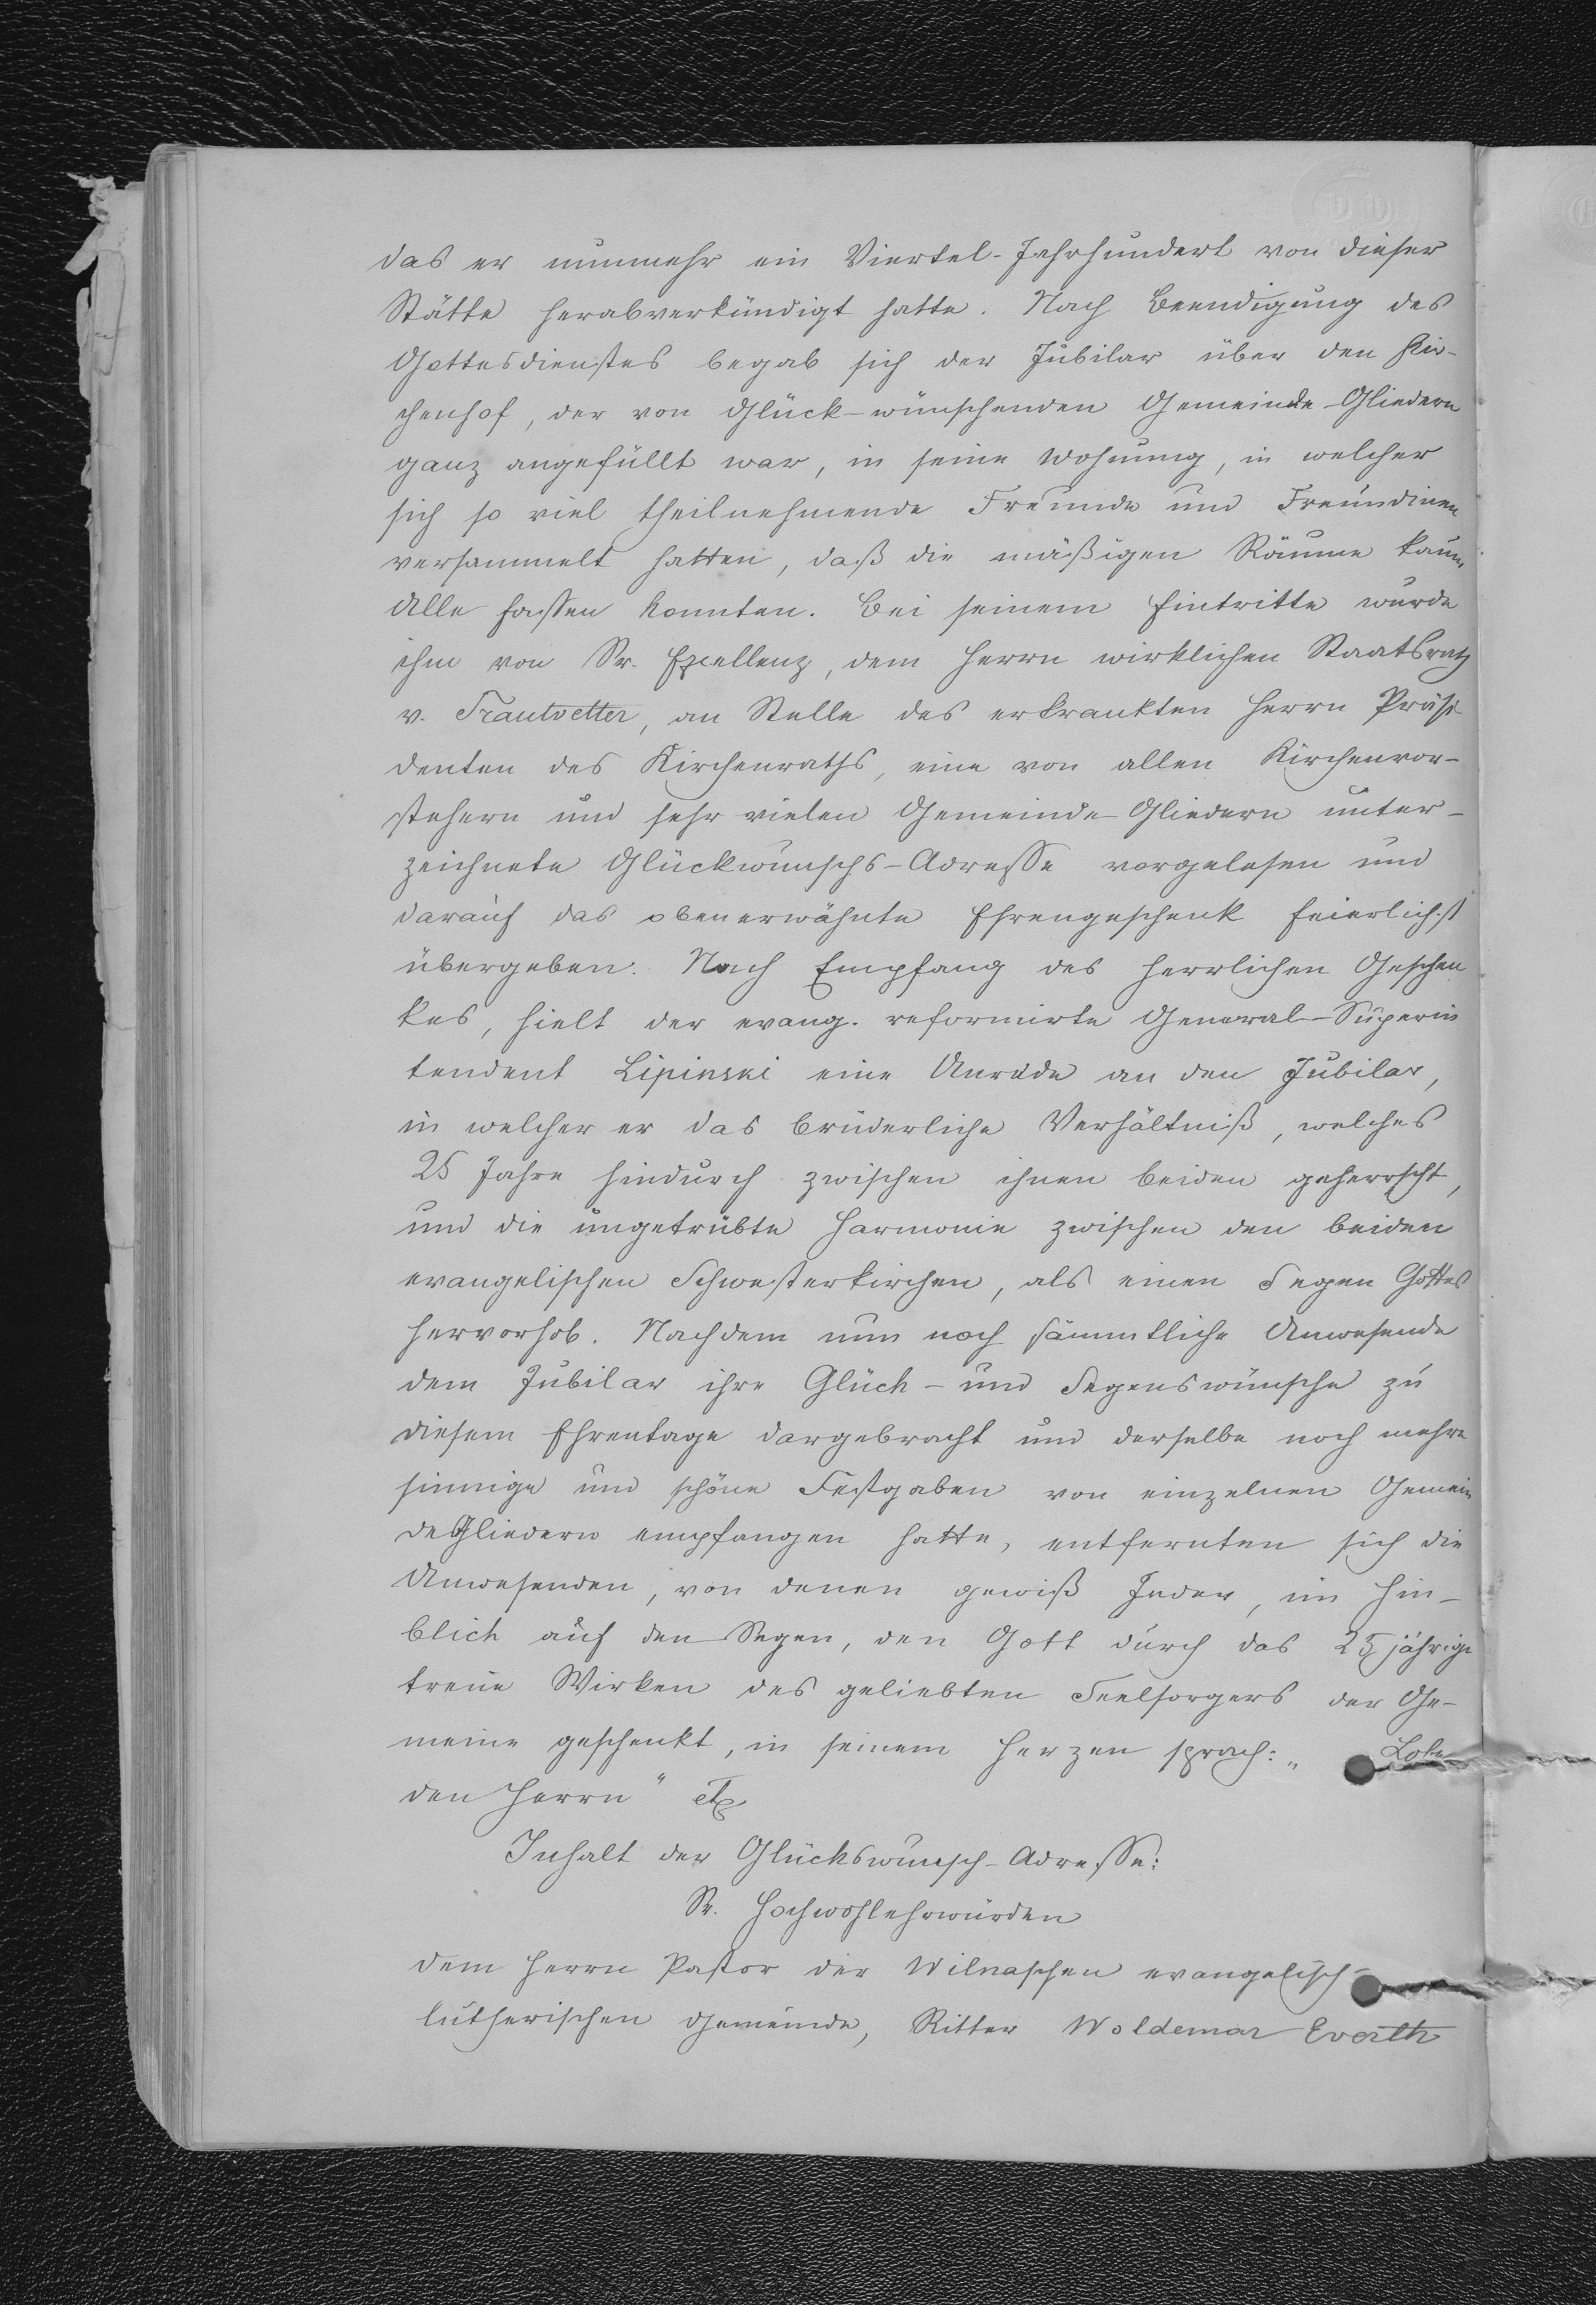 das er nunmehr ein Viertel-Jahrhundert von dieser
Stätte herabverkündigt hatte. Nach Beendigung des
Gottesdienstes begab sich der Jubilar über den Kir-
chenhof, der von Glück-wünschenden Gemeinde-Gliedern
ganz angefüllt war, in seine Wohnung, in welcher
sich so viel theilnehmende Freunde und Freundinen
versammelt hatten, daß die mäßigen Räume kaum
Alle fassen konnten. Bei seinem Eintritte wurde
ihm von Sr. Excellenz, dem Herrn wirklichen Staatsrath
v. Trautvetter, an Stelle des erkrankten Herrn Präsi
denten des Kirchenraths, eine von allen Kirchenvor-
stehern und sehr vielen Gemeinde-Gliedern unter-
zeichnete Glückwunschs-Adresse vorgelesen und
darauf das obenerwähnte Ehrengeschenk feierlichst
übergeben. Nach Empfang des herrlichen Geschen
kes, hielt der evang. reformirte General-Superin
tendent Lipinski eine Anrede an den Jubilar,
in welcher er das brüderliche Verhältniß, welches
25 Jahre hindurch zwischen ihnen beiden geherrscht,
und die ungetrübte Harmonie zwischen den beiden
evangelischen Schwesterkirchen, als einen Segen Gottes
hervorhob. Nachdem nun noch sämmtliche Anwesende
dem Jubilar ihre Glück- und Segenswünsche zu
diesem Ehrentage dargebracht und derselbe noch mehre
sinnige und schöne Festgaben von einzelnen Gemein
deGliedern empfangen hatte, entfernten sich die
Anwesenden, von denen gewiß Jeder, im Hin-
blick auf den Segen, den Gott durch das 25 jährige
treue Wirken des geliebten Seelsorgers der Ge-
meine geschenkt, in seinem Herzen sprach: „ Lobe
den Herrn“ etc
Inhalt der Glückswunsch-Adresse:
Sr. Hochwohlehrwürden
dem Herrn Pastor der Wilnaschen evangelisch-
lutherischen Gemeinde, Ritter Woldemar Everth